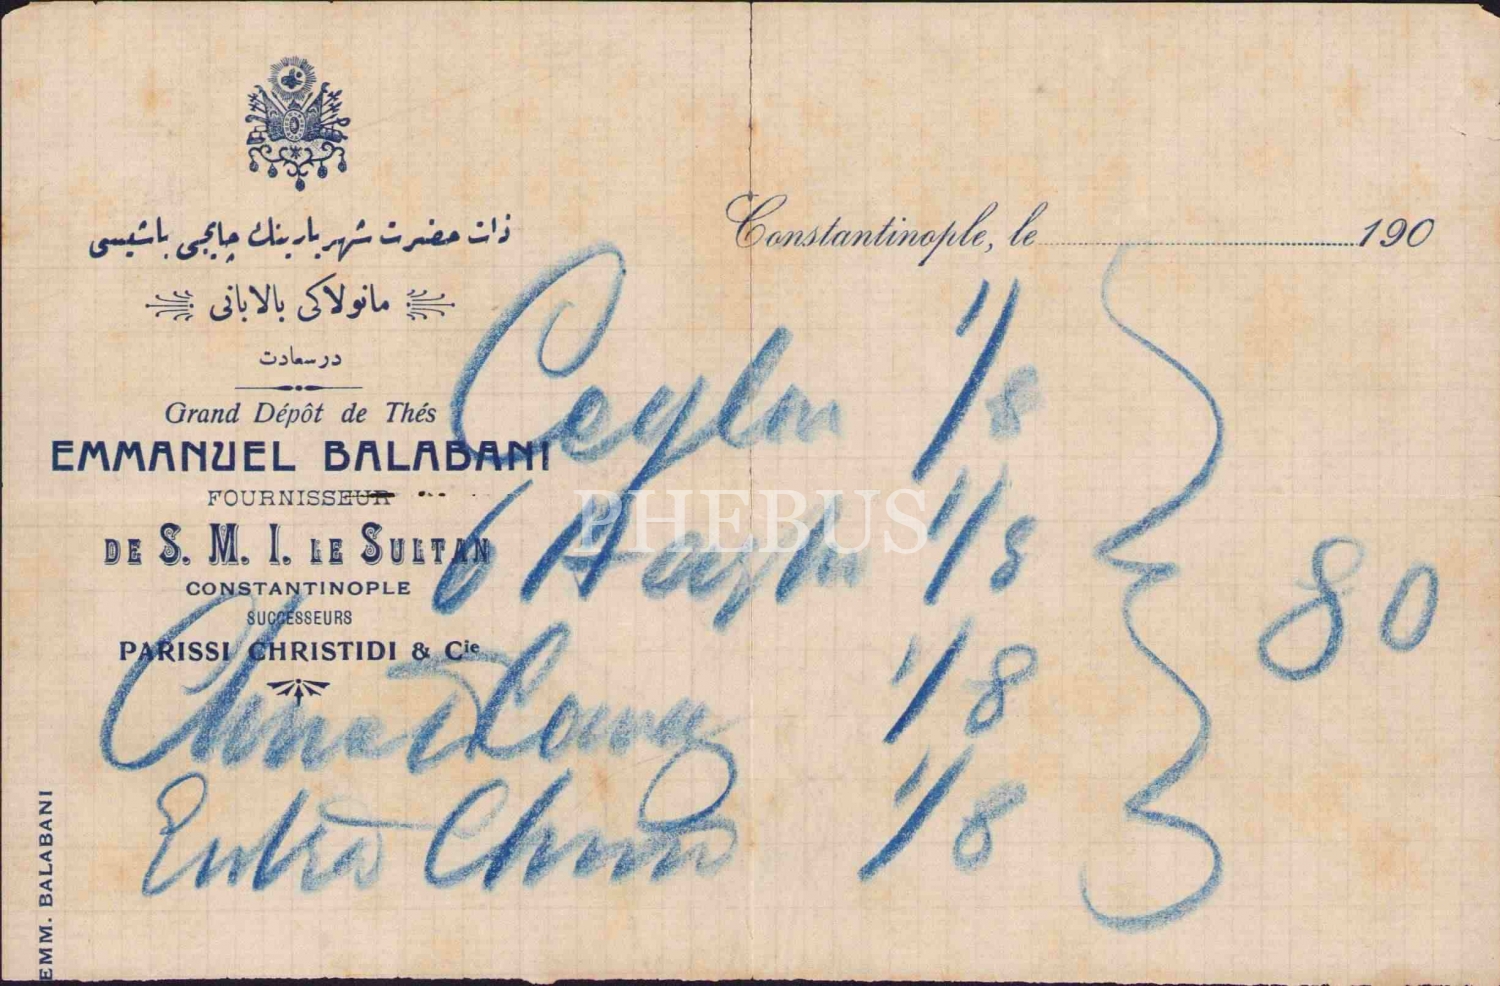 ذات حضرت شهریارینك چایجی باشیسی
مانولاكی بالابانی
درسعادت
Grand Dépôt de Thés
EMMANUEL BALABANI
FOURNISSEUR
DE S. M. I. LE SULTAN
CONSTANTINOPLE
SUCCESSEURS
PARISSI CHRISTIDI & Cie
EMM. BALABANI
Constantinople, le 190
Ceylon 1/8
1/8
1/8
Extra 1/8
80
PHEBUS